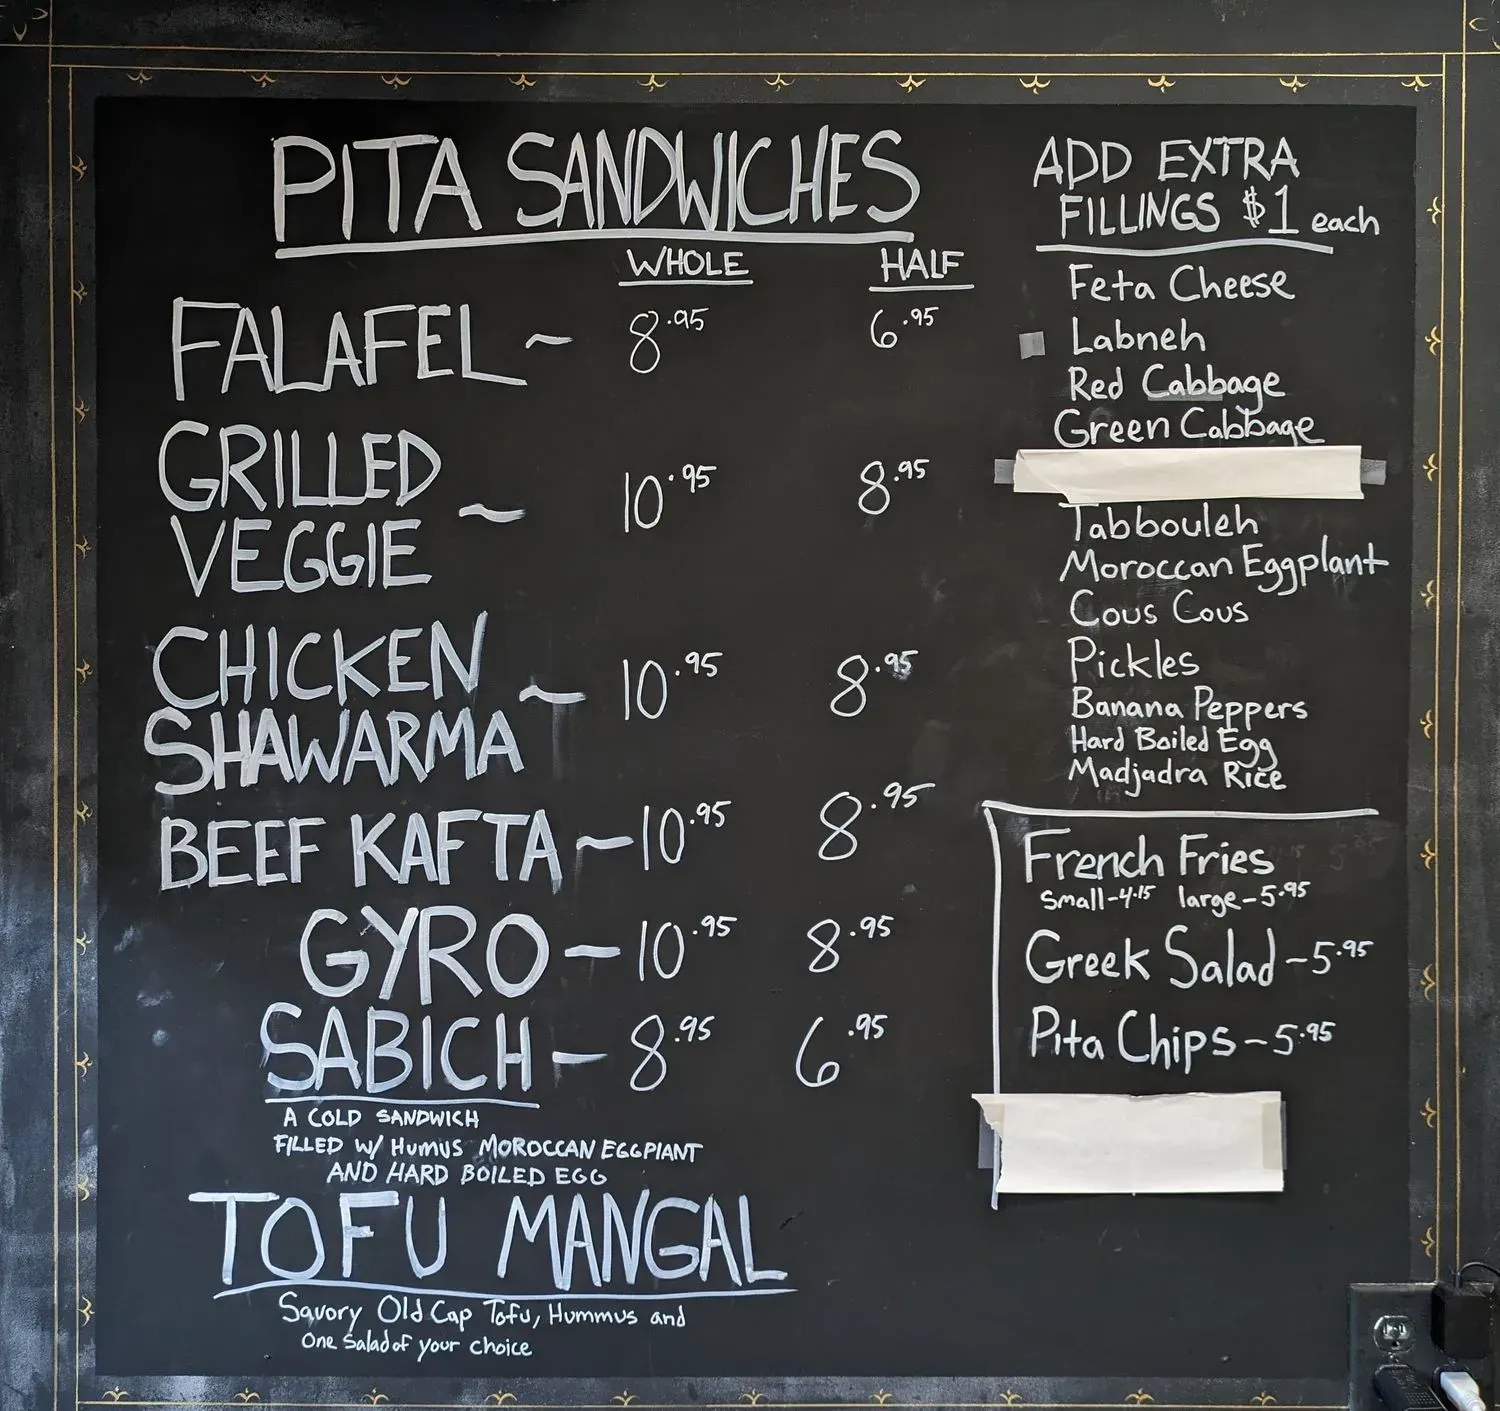 PITA SANDWICHES
WHOLE HALF
FALAFEL ~ 8.95 6.95
GRILLED
VEGGIE ~ 10.95 8.95
CHICKEN
SHAWARMA ~ 10.95 8.95
BEEF KAFTA ~ 10.95 8.95
GYRO - 10.95 8.95
SABICH - 8.95 6.95
A COLD SANDWICH
FILLED W/ Humus MOROCCAN EGGPlANT
AND HARD BOILED EGG
TOFU MANGAL
Savory Old Cap Tofu, Hummus and
One Salad of your choice
ADD EXTRA
FILLINGS $1 each
Feta Cheese
Labneh
Red Cabbage
Green Cabbage
Tabbouleh
Moroccan Eggplant
Cous Cous
Pickles
Banana Peppers
Hard Boiled Egg
Madjadra Rice
French Fries
small-4.15 large-5.95
Greek Salad-5.95
Pita Chips-5.95